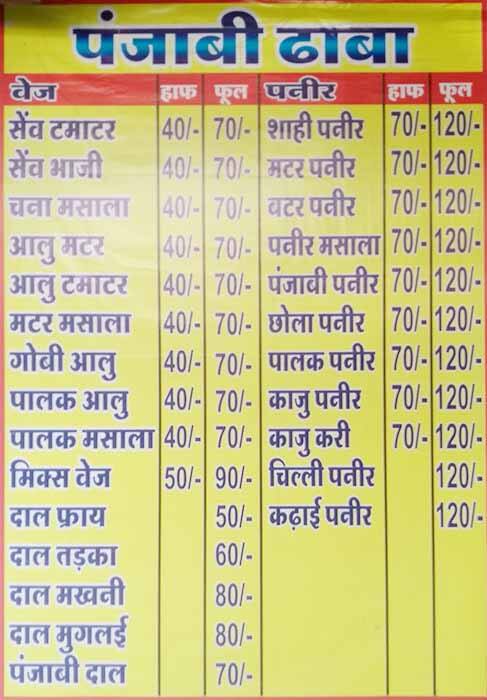 पंजाबी ढाबा
वेज हाफ फूल पनीर हाफ फूल
सेंव टमाटर 40/- 70/- शाही पनीर 70/- 120/-
सेंव भाजी 40/- 70/- मटर पनीर 70/- 120/-
चना मसाला 40/- 70/- बटर पनीर 70/- 120/-
आलु मटर 40/- 70/- पनीर मसाला 70/- 120/-
आलु टमाटर 40/- 70/- पंजाबी पनीर 70/- 120/-
मटर मसाला 40/- 70/- छोला पनीर 70/- 120/-
गोबी आलु 40/- 70/- पालक पनीर 70/- 120/-
पालक आलु 40/- 70/- काजु पनीर 70/- 120/-
पालक मसाला 40/- 70/- काजु करी 70/- 120/-
मिक्स वेज 50/- 90/- चिल्ली पनीर 120/-
दाल फ्राय 50/- कढ़ाई पनीर 120/-
दाल तड़का 60/-
दाल मखनी 80/-
दाल मुगलई 80/-
पंजाबी दाल 70/-